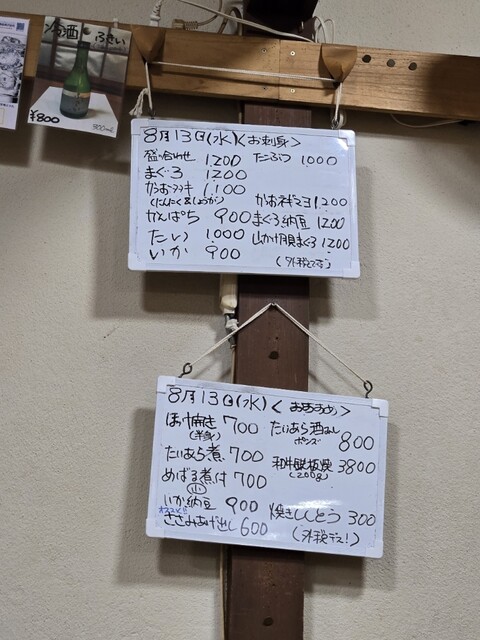 ¥800
8月13日(水)<お刺身>
盛り合わせ 1,200
まぐろ 1200
かつおタタキ 1,100
(にんにく&しょうが)
かんぱち 900
たい 1,000
いか 900
たこぶつ 1,000
かつおネギマヨ 1,200
まぐろ納豆 1200
山かけ用まぐろ 1200
(外税です)
8月13日(水)<おすすめ>
ほっけ焼き 700
(半身)
たいあら煮 700
めばる煮付 700
小
いか納豆 900
オススメ!!
ささみあげ出し 600
たいあら酒むし 800
ポンズ
和牛鉄板焼 3800
(200g)
焼きししとう 300
(外税デス!)